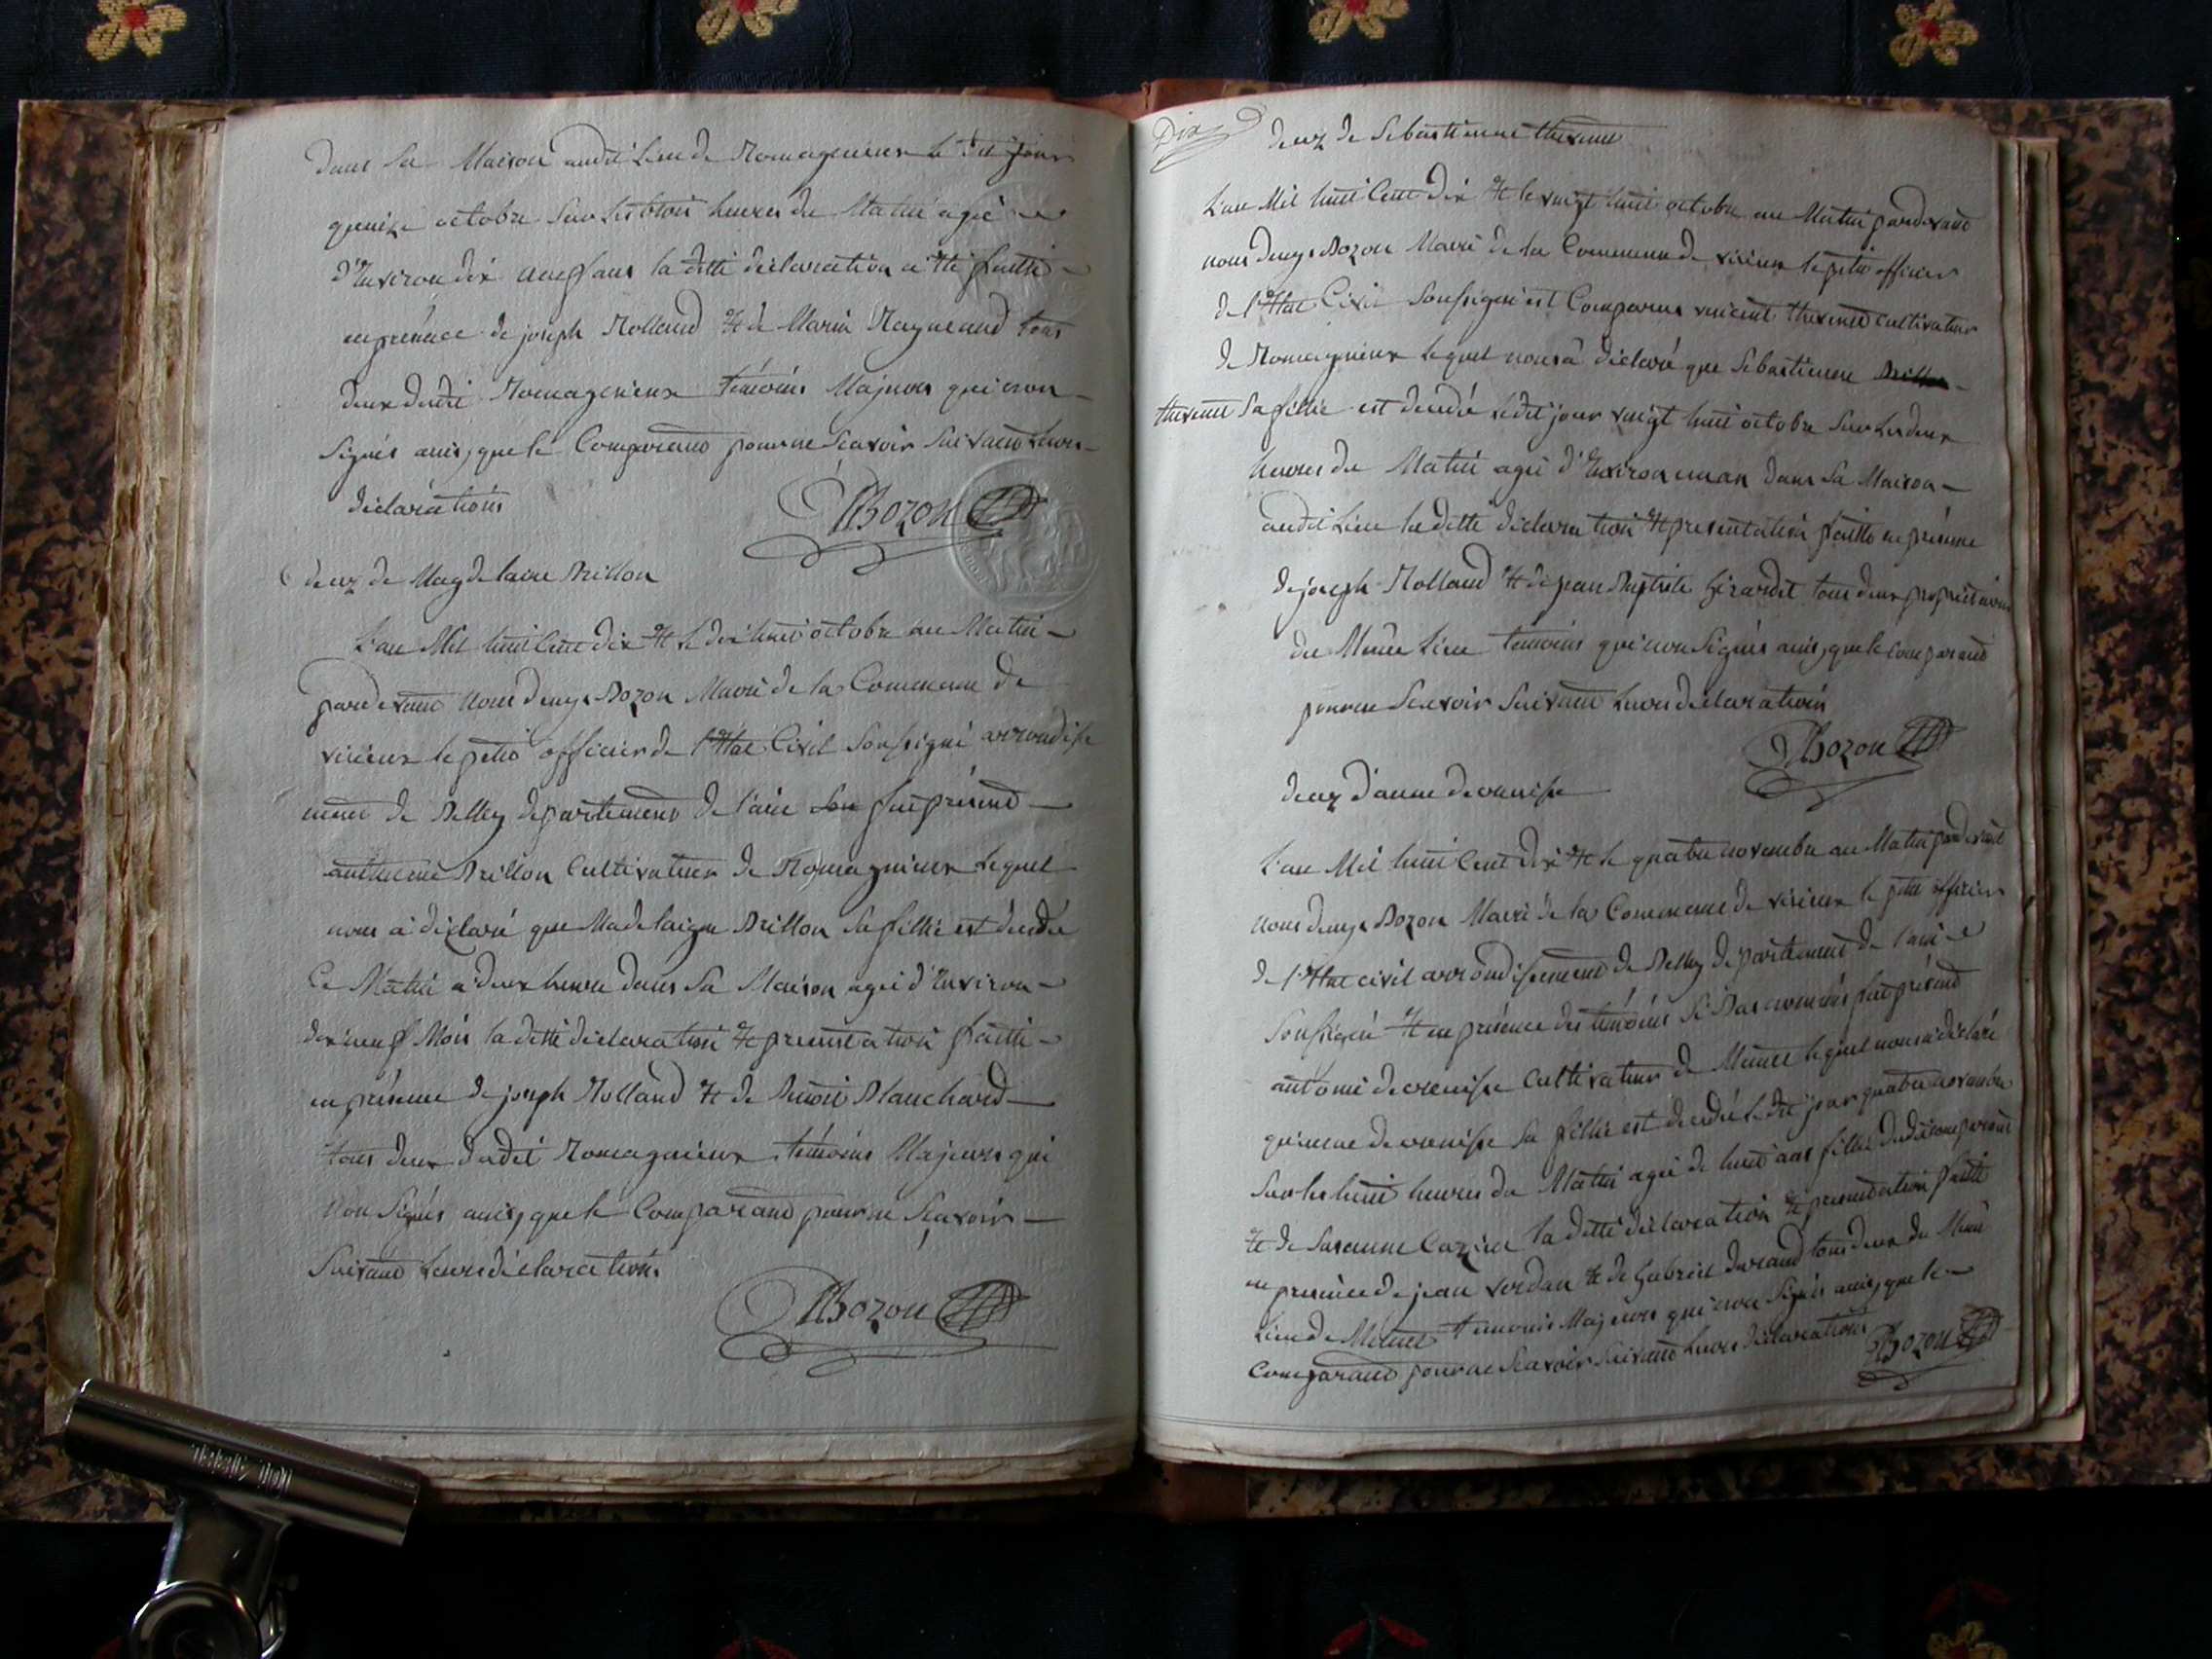 dans sa Maison audit Lieu de Romagnieux le dit jour
quinze octobre sur les trois heures du Matin agé
d'Environ dix neuf ans la ditte déclaration a été faitte
en présence de joseph Rolland et de Marin Raymand tous
deux dudit Romagnieux témoins Majeurs qui non
Signés ainsy que le Comparand pour ne Scavoir Suivand Leurs
déclarations
DBozon
decez de Magdelaine Brillon
L'an Mil huit Cent dix et le dix huit octobre au Matin
pardevant nous denys Bozon Maire de la Commune de
virieux le petit officier de l'Etat Civil Soussigné arrondisse
ment de Belley departement de l'ain fut présend
anthelme Brillon Cultivateur de Romagnieux Lequel
nous a déclaré que Madelaigne Brillon Sa fillie est décédée
Ce Matin a deux heure dans Sa Maison agée d'Environ
dix neuf Mois la ditte déclaration et présentation faitte
en présence de joseph Rolland et de Benoit Blanchard
tous deux dudit Romagnieux témoins Majeurs qui
non Signés ainsy que le Comparand pour ne Scavoir
Suivand Leurs déclarations
DBozon
Dix
decez de Sebastienne thevenet
L'an Mil huit Cent Dix et le vingt huit octobre au Matin pardevant
nous denys Bozon Maire de la Commune de virieux le petit officier
de l'Etat Civil Soussigné est Comparus vincent thevenet cultivateur
de Romagnieux lequel nous a déclaré que Sebastienne Brillon
thevenet Sa fillie est decedé Ledit jour vingt huit octobre Sur Les deux
heures du Matin agée d'Environ un an dans Sa Maison
audit Lieu la ditte déclaration et présentation faitte en présence
de joseph Rolland et de jean Baptiste Girardet tous deux propriétaires
du Même Lieu témoins qui non Signés ainsy que le comparand
pour ne Scavoir Suivant Leurs déclarations
DBozon
decez d'anne decrenisse
L'an Mil huit Cent Dix et le quatre novembre au Matin pardevant
nous denys Bozon Maire de la Commune de virieux le petit officier
de l'Etat civil arrondissement de Belley departement de l'ain
Soussigné et en présence des témoins Ci Bas nommés fut présend
antoine decrenisse Cultivateur de Munet lequel nous a déclaré
qu'anne decrenisse Sa fillie est decedé Ledit jour quatre novembre
Sur les huit heures du Matin agée de huit ans fillie dudit comparand
et de Susanne Cazin la ditte déclaration et présentation faitte
en présence de jean verdan et de Gabriel durand tous deux du Même
Lieu de Munet témoins Majeurs qui non Signés ainsy que le
Comparand pour ne Scavoir Suivand Leurs déclarations
DBozon